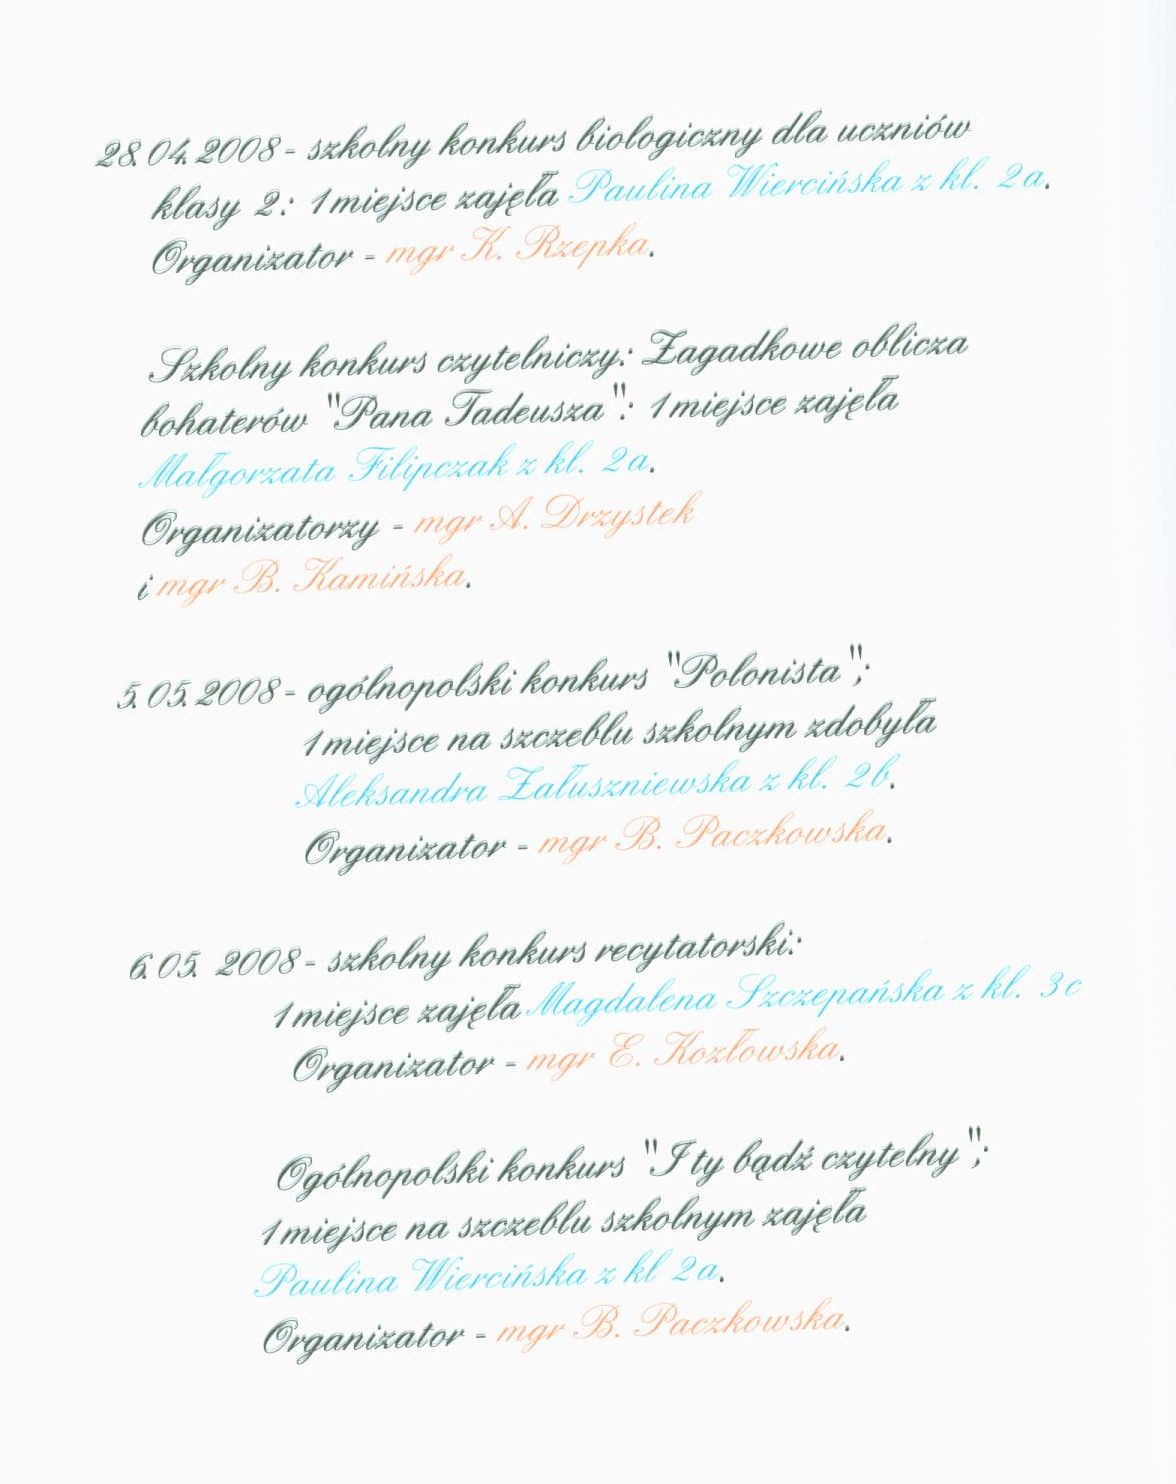 28.04.2008 - szkolny konkurs biologiczny dla uczniów
klasy 2: 1 miejsce zajęła Paulina Wiercińska z kl. 2a.
Organizator - mgr K. Rzepka.
Szkolny konkurs czytelniczy: Zagadkowe oblicza
bohaterów "Pana Tadeusza": 1 miejsce zajęła
Małgorzata Filipczak z kl. 2a.
Organizatorzy - mgr A. Drzystek
i mgr B. Kamińska.
5.05.2008 - ogólnopolski konkurs "Polonista";
1 miejsce na szczeblu szkolnym zdobyła
Aleksandra Załuszniewska z kl. 2b.
Organizator - mgr B. Paczkowska.
6.05. 2008 - szkolny konkurs recytatorski:
1 miejsce zajęła Magdalena Szczepańska z kl. 3c
Organizator - mgr E. Kozłowska.
Ogólnopolski konkurs "I ty bądź czytelny";
1 miejsce na szczeblu szkolnym zajęła
Paulina Wiercińska z kl 2a.
Organizator - mgr B. Paczkowska.